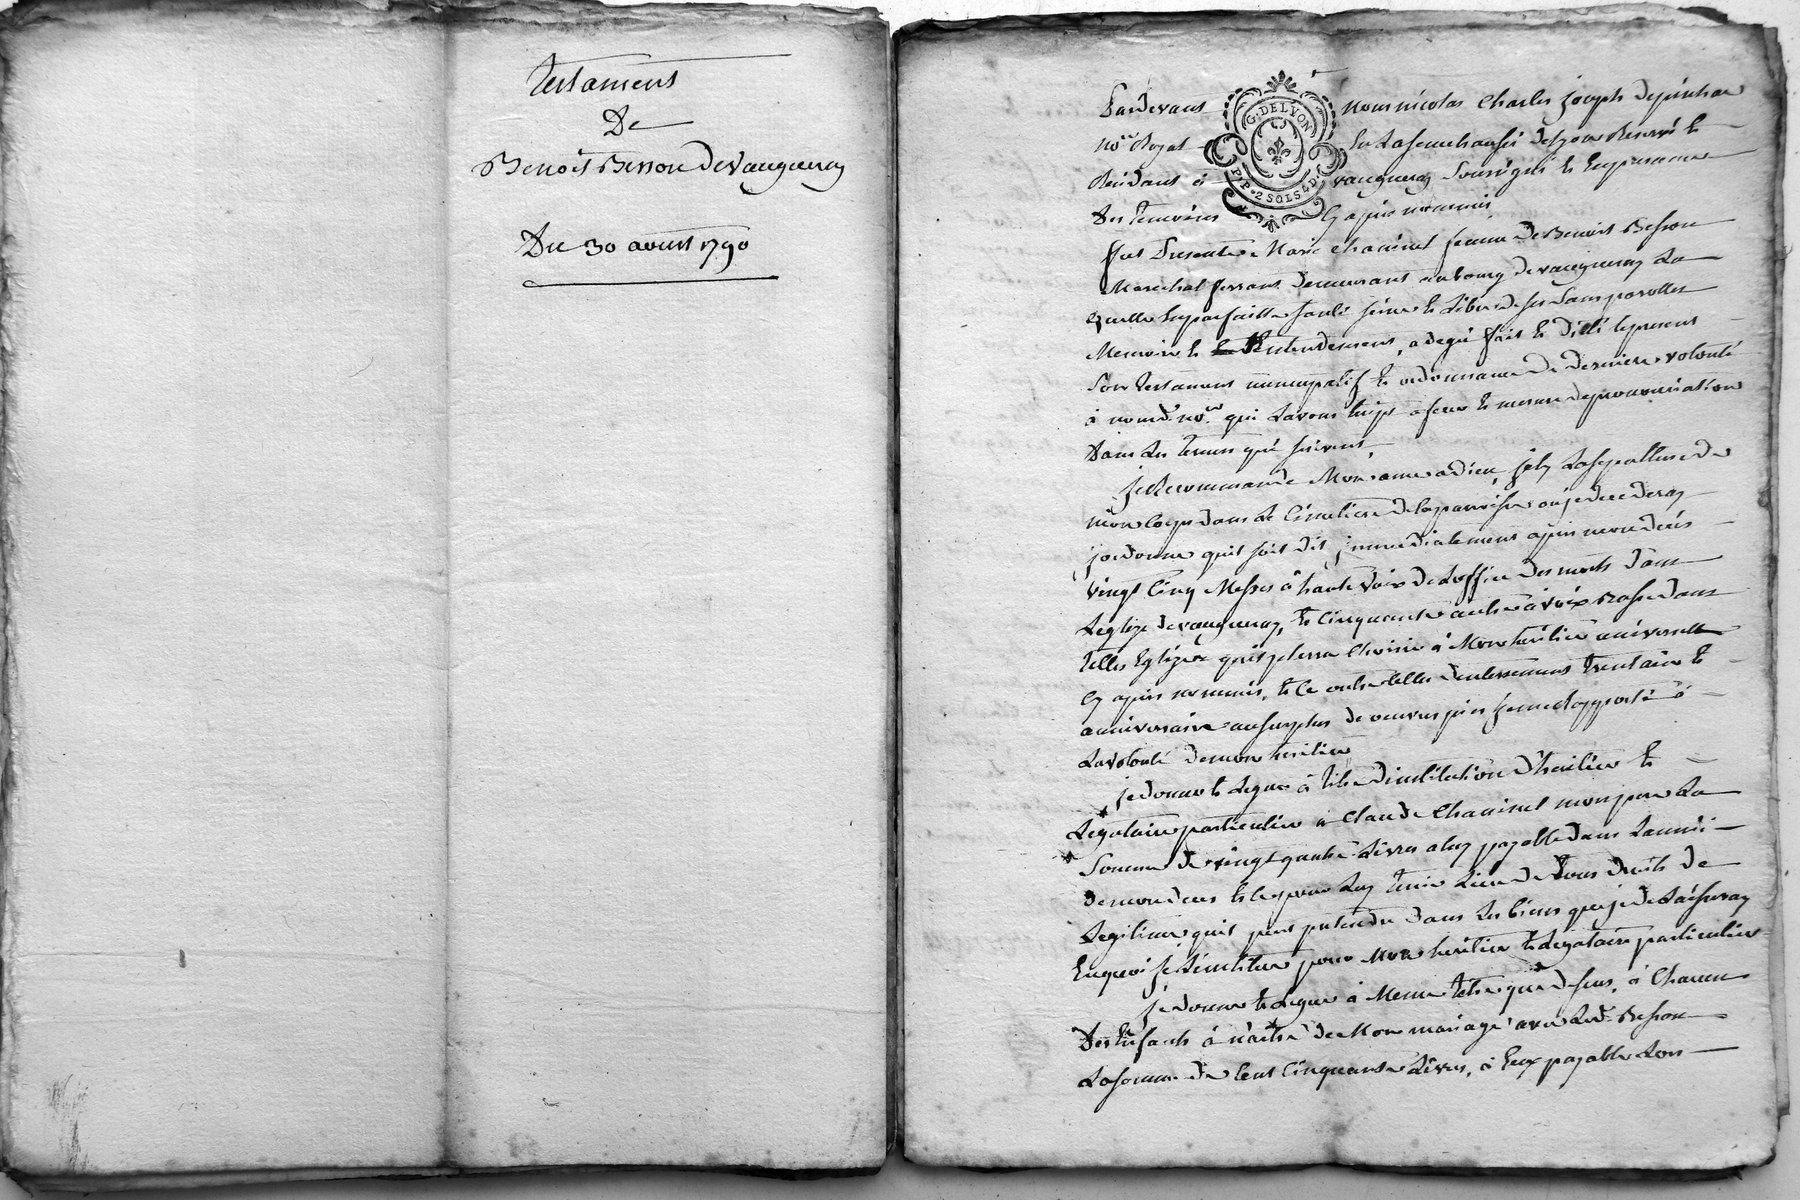 Testament
De
Benoit Besson de Vaugneray
Du 30 aoust 1790
G. DE LYON
P.P. 2 SOLS 4 D.
Pardevant nous nicolas Charles joseph
no.re Royal en la senechaussée de Lyon Reservé et
Residant à vaugneray soussigné et en presence
Des temoins cy apres nommés
fut Presente Marie Chavinel femme de Benoit Besson
Marechal ferrant demeurant au bourg de vaugneray La
quelle en parfaitte santé, saine et Libre de ses sans parolle
Memoire et entendement, a de gré fait et dicté le present
son testament nuncupatif et ordonnance de derniere volonté
à nous d. no.re qui L'avons ecript à fur et mesure de prononciation
Dans Les termes qui suivent,
je Recommande Mon ame a dieu, j'elis La sepulture de
mon corps dans Le Cimetiere de la paroisse ou je decederay
j'ordonne quil soit dit immediatement apres mon deces
vingt Cinq Messes à haute voix de L'office des morts dans
L'eglize de vaugneray, et Cinquante autre à voix Basse dans
telles Eglizes quil plerra Choisir à Mon heritier universelle
Cy apres nommé, et ce outre telles trentain et
anniversaire au surplus de oeuvres pies je m'en rapporte à
La volonté de mon heritier
je donne et Legue à titre d'institution d'heritier et
Legataire particulier à Claude Chavinel mon pere La
Somme de vingt quatre Livres a luy payable dans L'année
de mon deces et ce pour Luy tenir Lieu de tous droits de
Legitime quil peut pretendre dans Les biens que je delaisseray
En quoi je L'institue pour Mon heritier et Legataire particulier
je donne et Legue à Meme titre que dessus, à Chacun
Des Enfants à naitre de Mon mariage avec Led. Besson
La somme de Cent Cinquante Livres, à Eux payable Lors